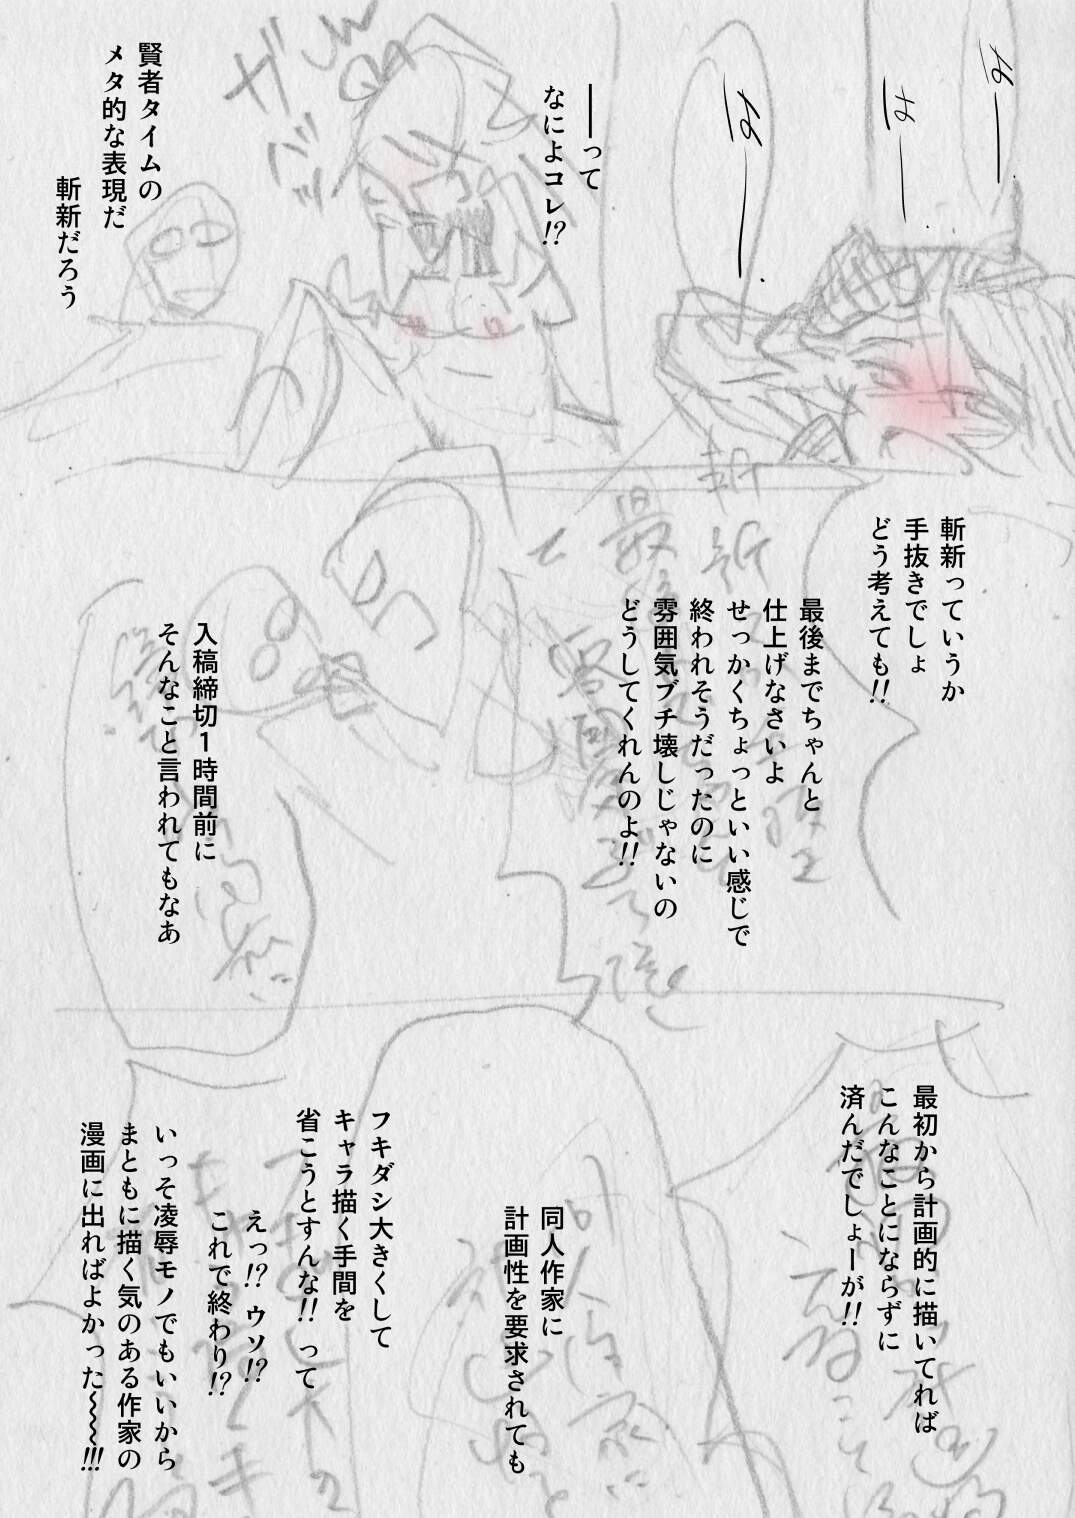 はー
はー
はー
――って
なによコレ!?
ザッ
バッ
賢者タイムの
メタ的な表現だ
斬新だろう
斬新っていうか
手抜きでしょ
どう考えても!!
最後までちゃんと
仕上げなさいよ
せっかくちょっといい感じで
終われそうだったのに
雰囲気ブチ壊しじゃないの
どうしてくれんのよ!!
入稿締切1時間前に
そんなこと言われてもなあ
最初から計画的に描いてれば
こんなことにならずに
済んだでしょーが!!
同人作家に
計画性を要求されても
フキダシ大きくして
キャラ描く手間を
省こうとすんな!! って
えっ!? ウソ!?
これで終わり!?
いっそ凌辱モノでもいいから
まともに描く気のある作家の
漫画に出ればよかった～～～!!!